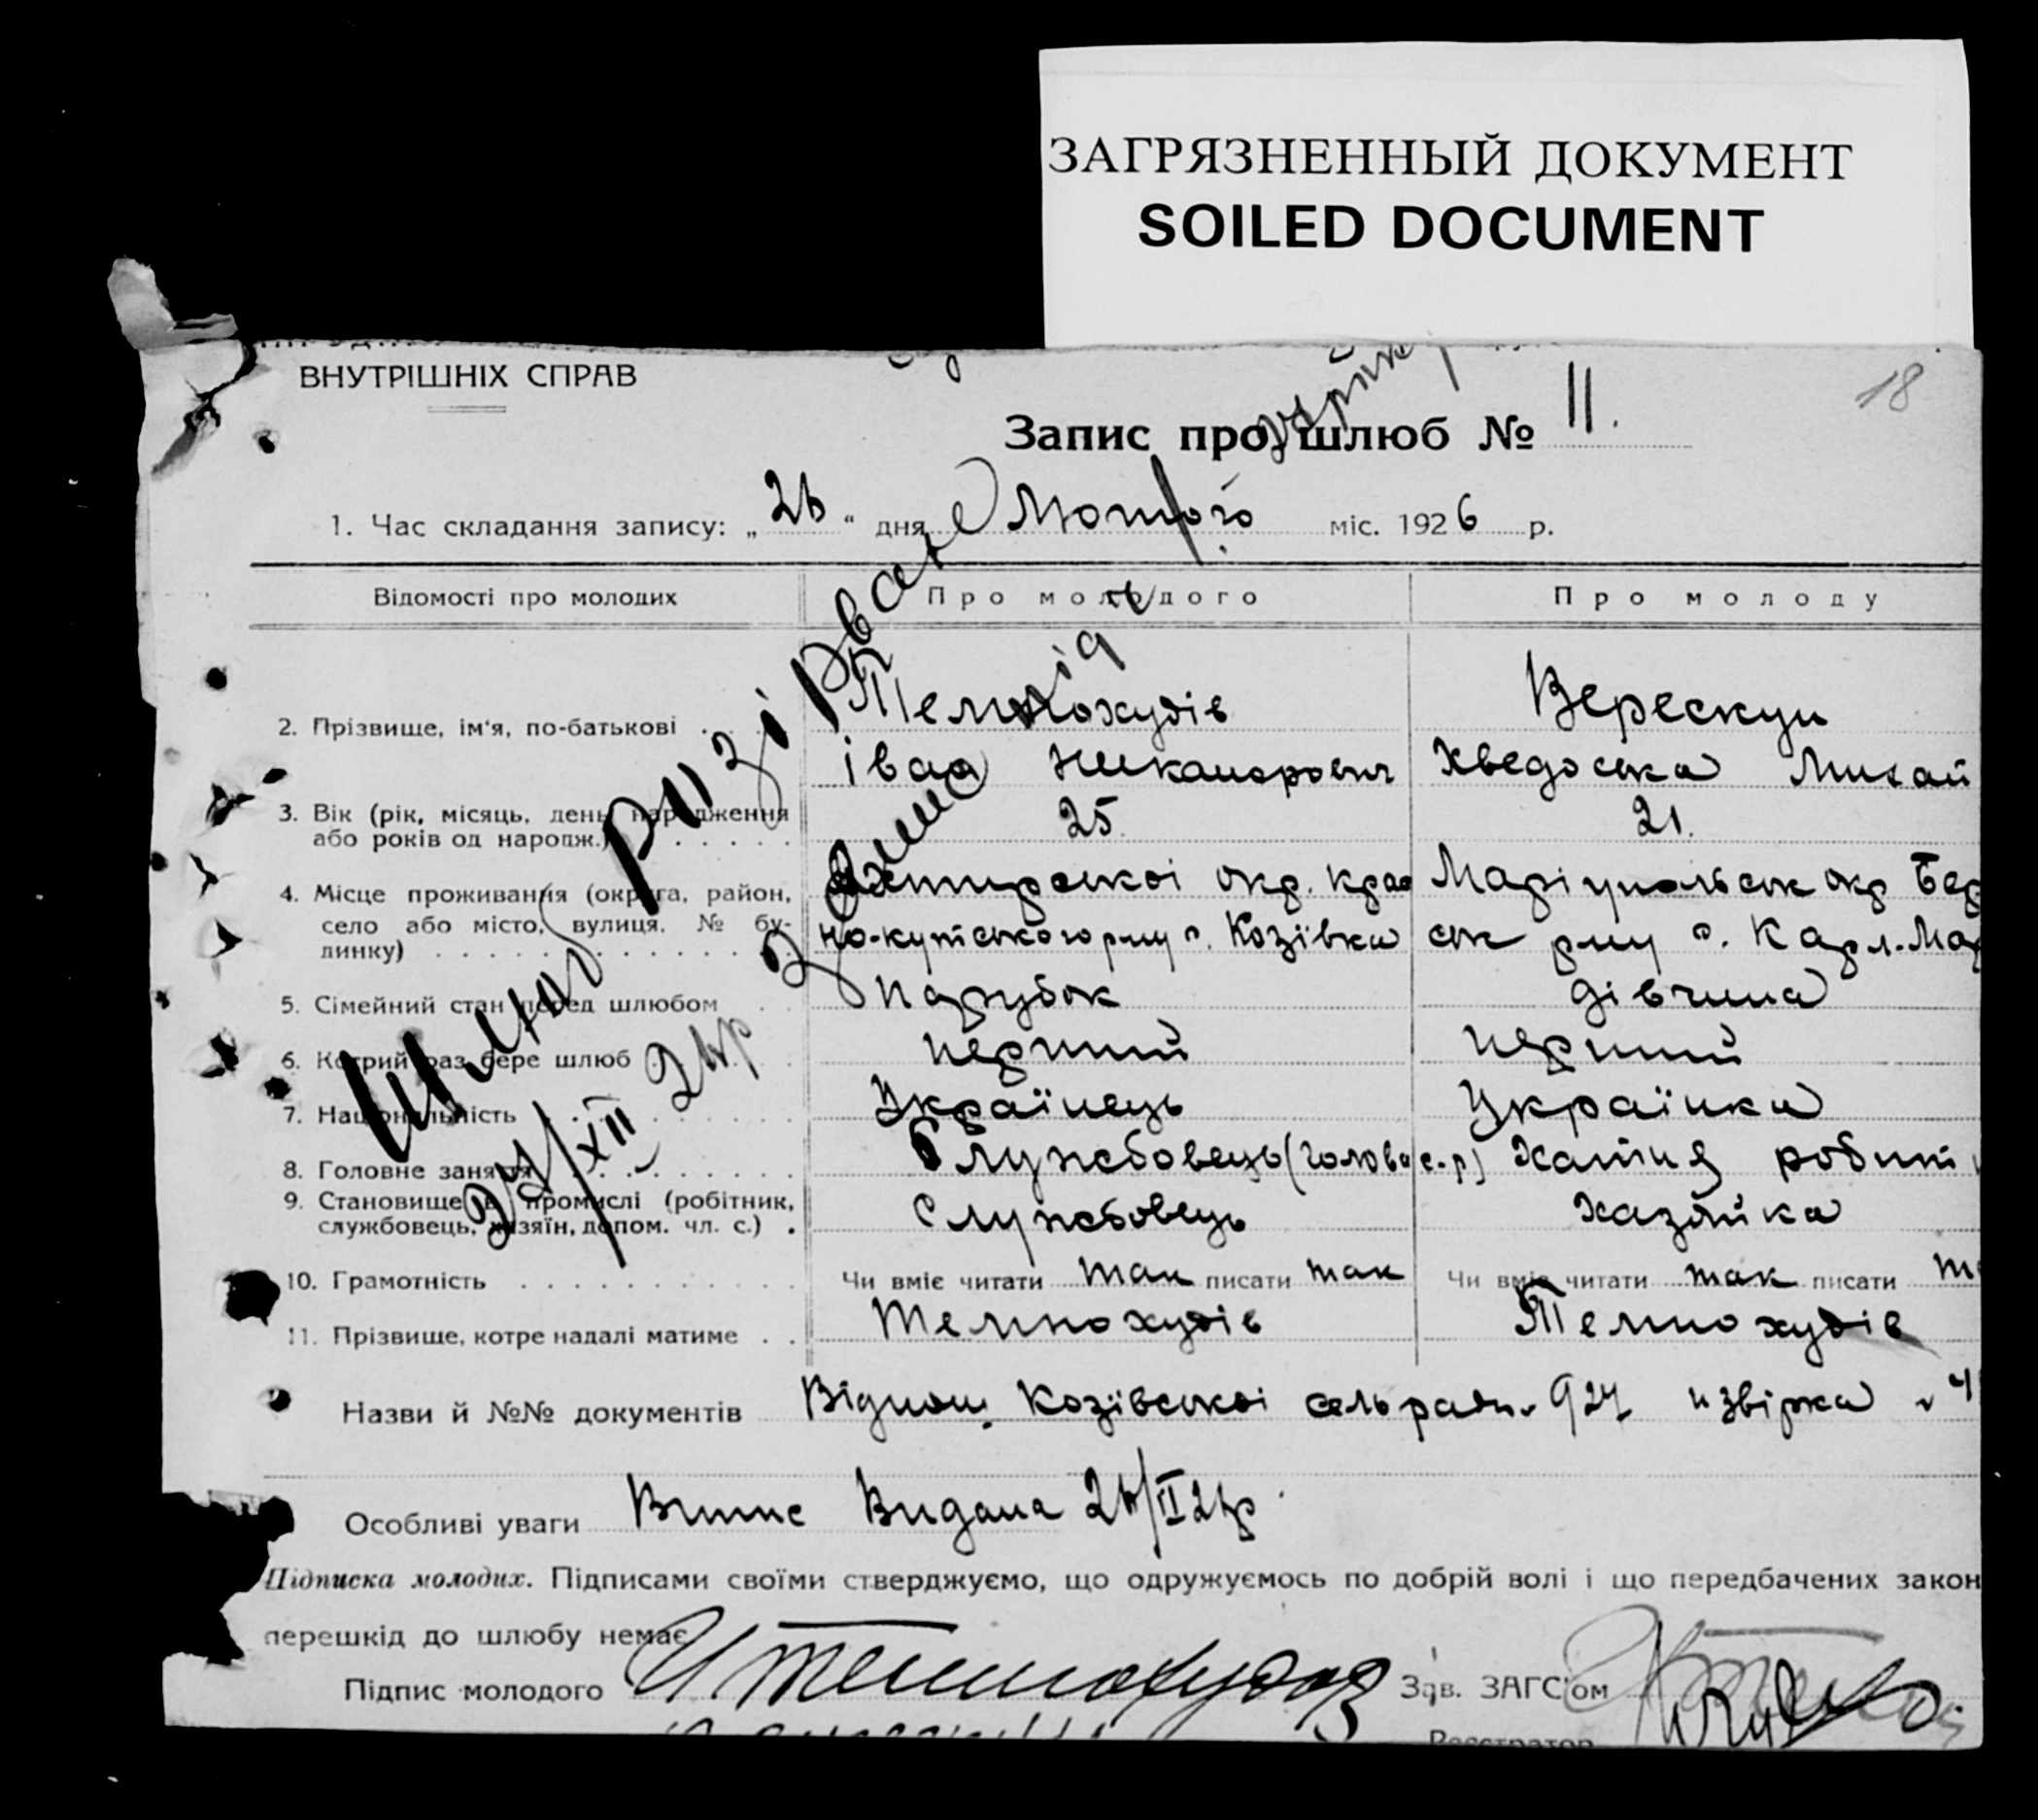 ЗАГРЯЗНЕННЫЙ ДОКУМЕНТ
SOILED DOCUMENT
ВНУТРІШНІХ СПРАВ
18
Запис про шлюб № 11.
1. Час складання запису: „26“ дня Лютого міс. 1926 р.
Відомості про молодих Про молодого Про молоду
2. Прізвище, ім'я, по-батькові Темнохудів Верескун
Іван Никанорович Хведоська Михай
3. Вік (рік, місяць, день народження 25. 21.
або років од народж.)
4. Місце проживання (округа, район, Охтирської окр. Крас Маріупольськ окр
село або місто, вулиця, № бу- но-кутського р-ну с. Козівка ськ р-ну с. Карл-Мар
динку)
5. Сімейний стан перед шлюбом Парубок дівчина
6. Котрий раз бере шлюб перший перший
7. Національність Українець Українка
8. Головне заняття Службовець (голова с.р) Хатня робітн
9. Становище в промислі (робітник, Службовець Хазяйка
службовець, хазяїн, допом. чл. с.)
10. Грамотність Чи вміє читати так писати так Чи вміє читати так писати
11. Прізвище, котре надалі матиме Темнохудів Темнохудів
Назви й №№ документів Віднош. Козівської сельради 927
Особливі уваги Витис Видана 26/II 26р.
Підписка молодих. Підписами своїми стверджуємо, що одружуємось по добрій волі і що передбачених закон
перешкід до шлюбу немає
Підпис молодого И Темнохудов Зав. ЗАГС'ом
Реєстратор
Шлюб розірвано